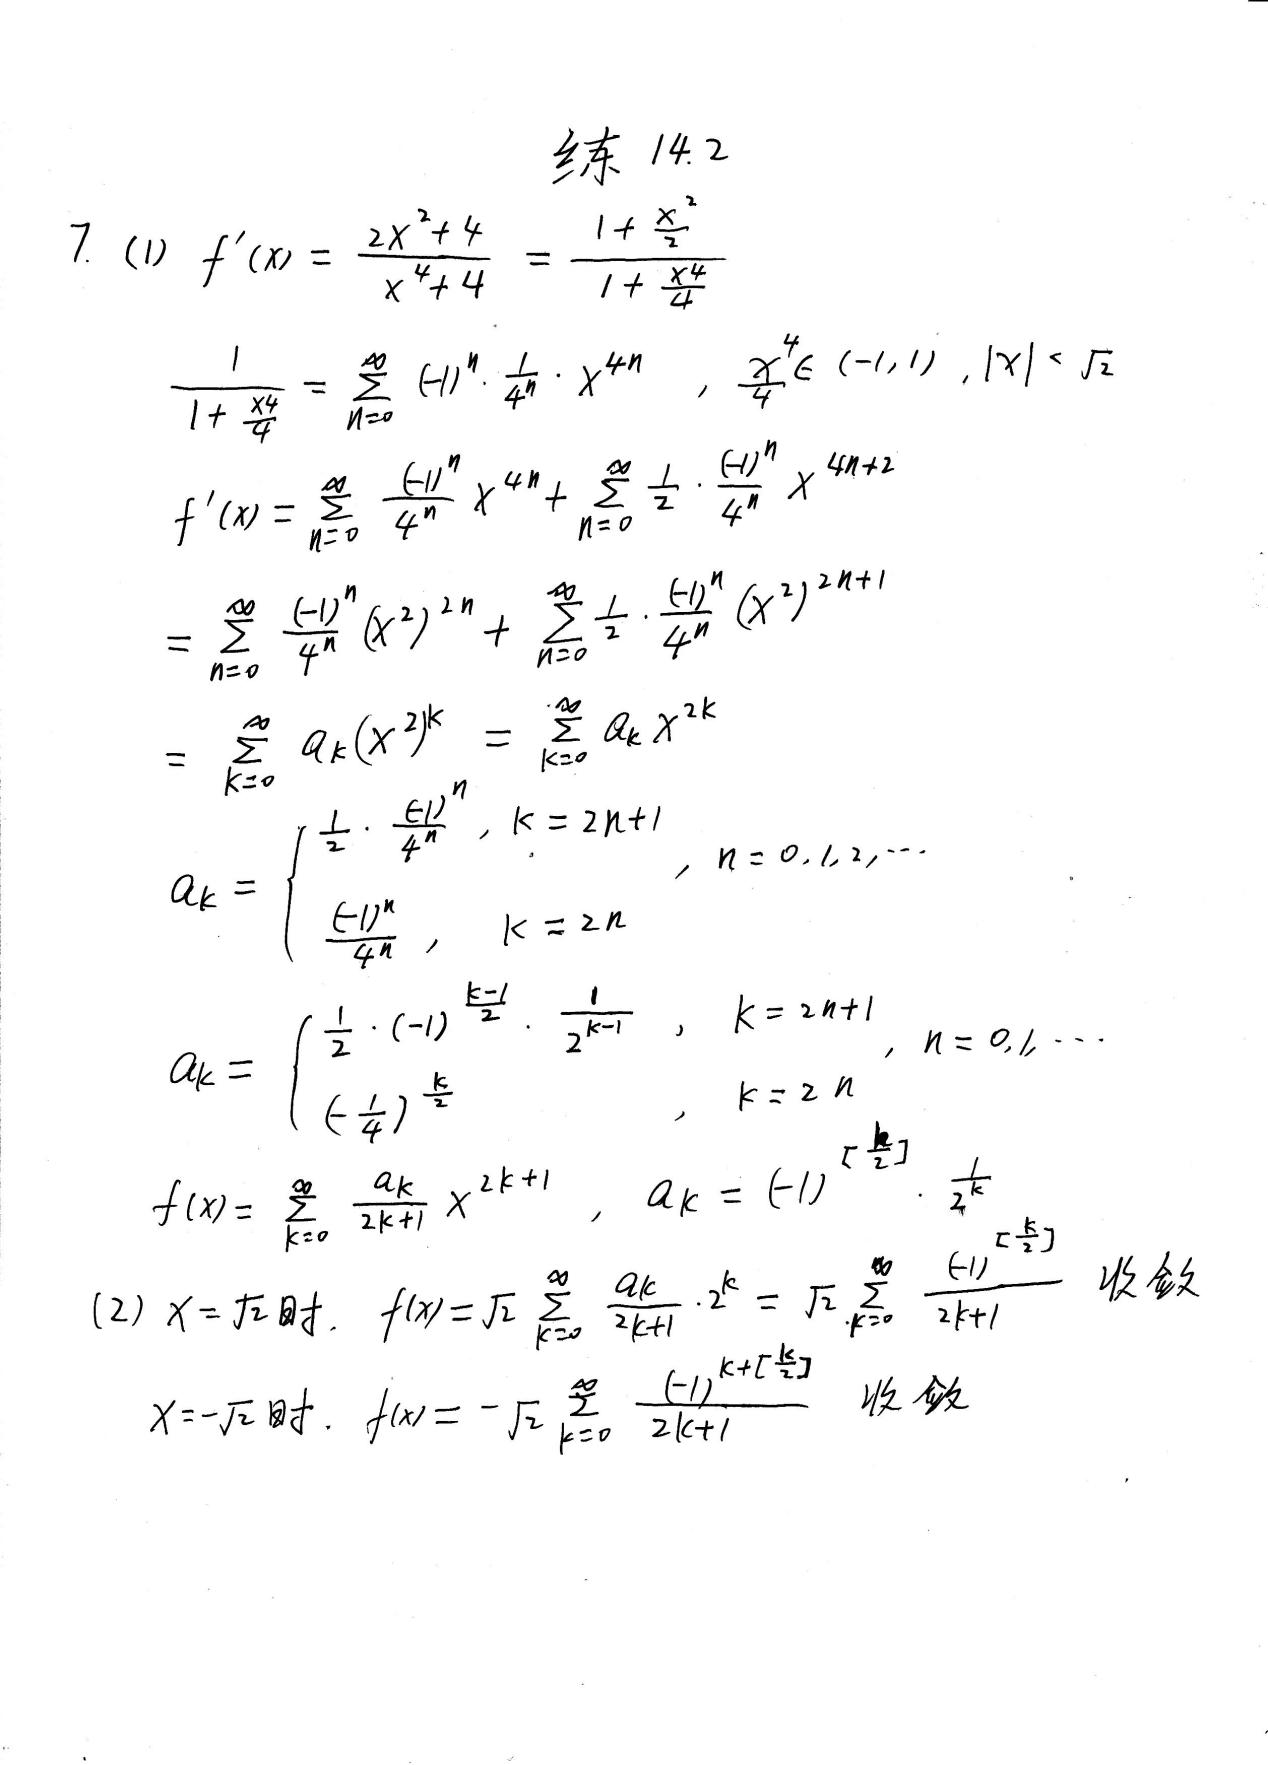 练 14.2
7. (1) f'(x) = \frac{2x^2+4}{x^4+4} = \frac{1+\frac{x^2}{2}}{1+\frac{x^4}{4}}
\frac{1}{1+\frac{x^4}{4}} = \sum_{n=0}^{\infty} (-1)^n \cdot \frac{1}{4^n} \cdot x^{4n} , \frac{x^4}{4} \in (-1,1) , |x| < \sqrt{2}
f'(x) = \sum_{n=0}^{\infty} \frac{(-1)^n}{4^n} x^{4n} + \sum_{n=0}^{\infty} \frac{1}{2} \cdot \frac{(-1)^n}{4^n} x^{4n+2}
= \sum_{n=0}^{\infty} \frac{(-1)^n}{4^n} (x^2)^{2n} + \sum_{n=0}^{\infty} \frac{1}{2} \cdot \frac{(-1)^n}{4^n} (x^2)^{2n+1}
= \sum_{k=0}^{\infty} a_k (x^2)^k = \sum_{k=0}^{\infty} a_k x^{2k}
a_k = \begin{cases} \frac{1}{2} \cdot \frac{(-1)^n}{4^n} , k = 2n+1 \\ \frac{(-1)^n}{4^n} , k = 2n \end{cases} , n = 0, 1, 2, \cdots
a_k = \begin{cases} \frac{1}{2} \cdot (-1)^{\frac{k-1}{2}} \cdot \frac{1}{2^{k-1}} , k = 2n+1 \\ (-\frac{1}{4})^{\frac{k}{2}} , k = 2n \end{cases} , n = 0, 1, \cdots
f(x) = \sum_{k=0}^{\infty} \frac{a_k}{2k+1} x^{2k+1} , a_k = (-1)^{[\frac{k}{2}]} \cdot \frac{1}{2^k}
(2) x = \sqrt{2} 时. f(x) = \sqrt{2} \sum_{k=0}^{\infty} \frac{a_k}{2k+1} \cdot 2^k = \sqrt{2} \sum_{k=0}^{\infty} \frac{(-1)^{[\frac{k}{2}]}}{2k+1} 收敛
x = -\sqrt{2} 时. f(x) = -\sqrt{2} \sum_{k=0}^{\infty} \frac{(-1)^{k+[\frac{k}{2}]}}{2k+1} 收敛